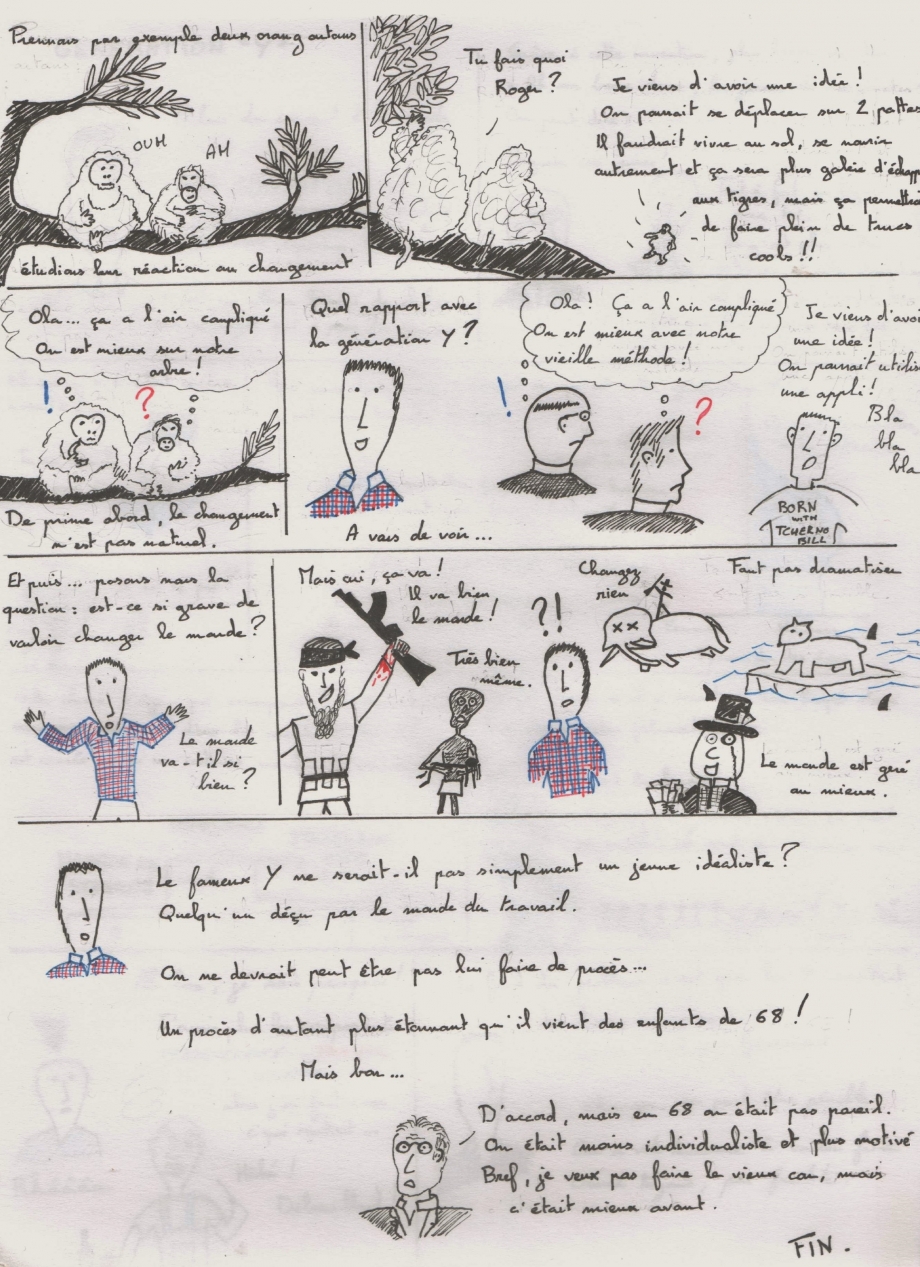 Prennons par exemple deux orang outans
OUH
AH
étudions leur réaction au changement
Tu fais quoi
Roger ?
Je viens d'avoir une idée !
On pourrait se déplacer sur 2 pattes
Il faudrait vivre au sol, se nourrir
autrement et ça sera plus galère d'échapp
aux tigres, mais ça permettra
de faire plein de trucs
cools !!
Ola... ça a l'air compliqué
On est mieux sur notre
arbre !
!
?
De prime abord, le changement
n'est pas naturel.
Quel rapport avec
la génération Y ?
A vous de voir...
Ola ! Ça a l'air compliqué
On est mieux avec notre
vieille méthode !
!
?
Je viens d'avoi
une idée !
On pourrait utilis
une appli !
Bla
bla
bla
BORN
WITH
TCHERNO
BILL
Et puis... posons nous la
question : est-ce si grave de
vouloir changer le monde ?
Le monde
va-t-il si
bien ?
Mais oui, ça va !
Il va bien
le monde !
Très bien
même.
?!
Changez
rien
Faut pas dramatiser
Le monde est géré
au mieux.
Le fameux Y ne serait-il pas simplement un jeune idéaliste ?
Quelqu'un déçu par le monde du travail.
On ne devrait peut être pas lui faire de procès...
Un procès d'autant plus étonnant qu'il vient des enfants de 68 !
Mais bon...
D'accord, mais en 68 on était pas pareil.
On était moins individualiste et plus motivé
Bref, je veux pas faire le vieux con, mais
c'était mieux avant.
FIN.